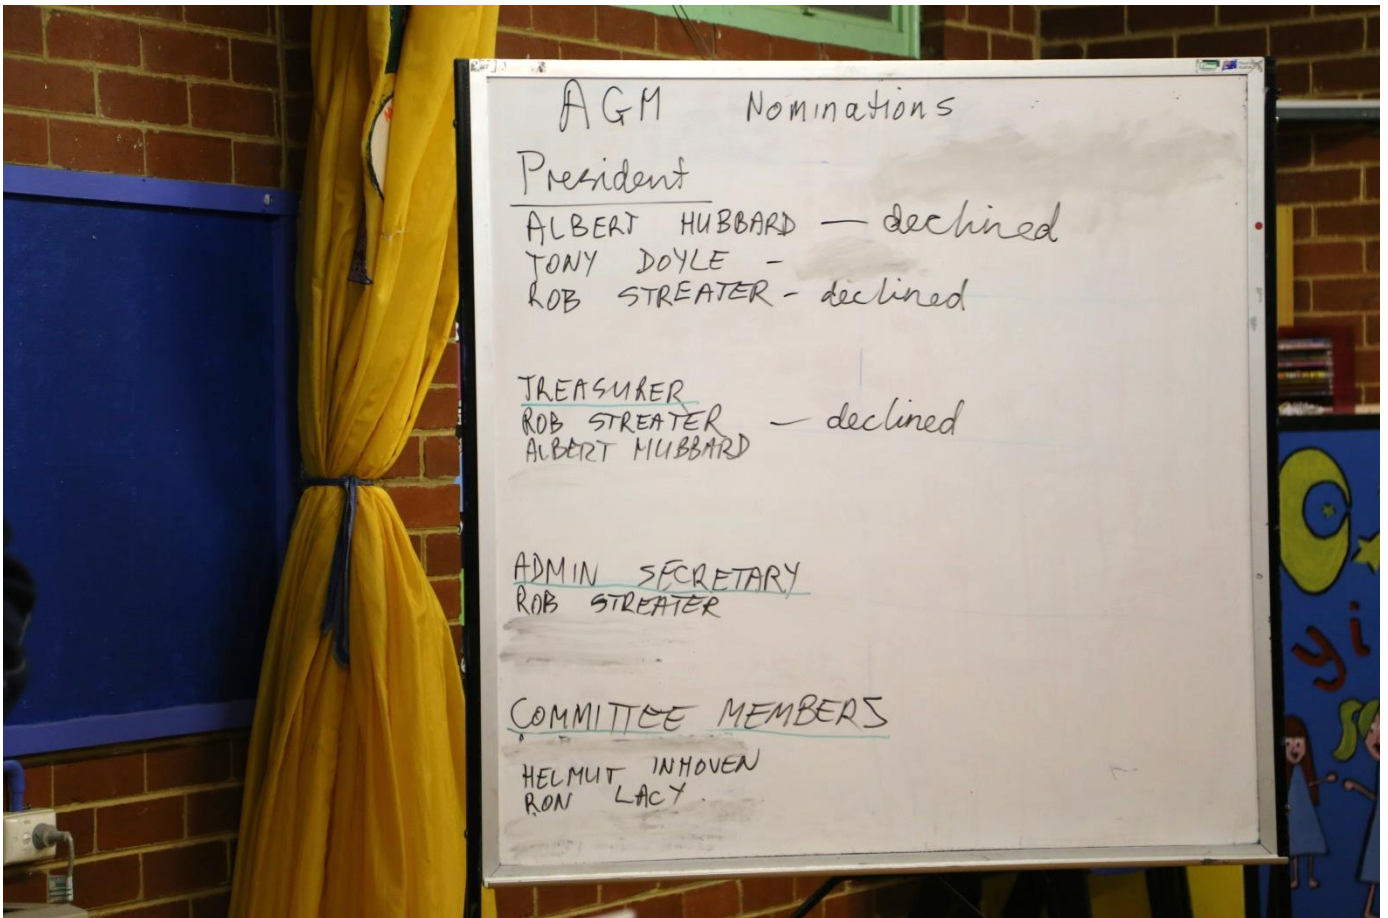 AGM Nominations
President
ALBERT HUBBARD — declined
TONY DOYLE -
ROB STREATER - declined
TREASURER
ROB STREATER — declined
ALBERT HUBBARD
ADMIN SECRETARY
ROB STREATER
COMMITTEE MEMBERS
HELMUT INHOVEN
RON LACY
yi